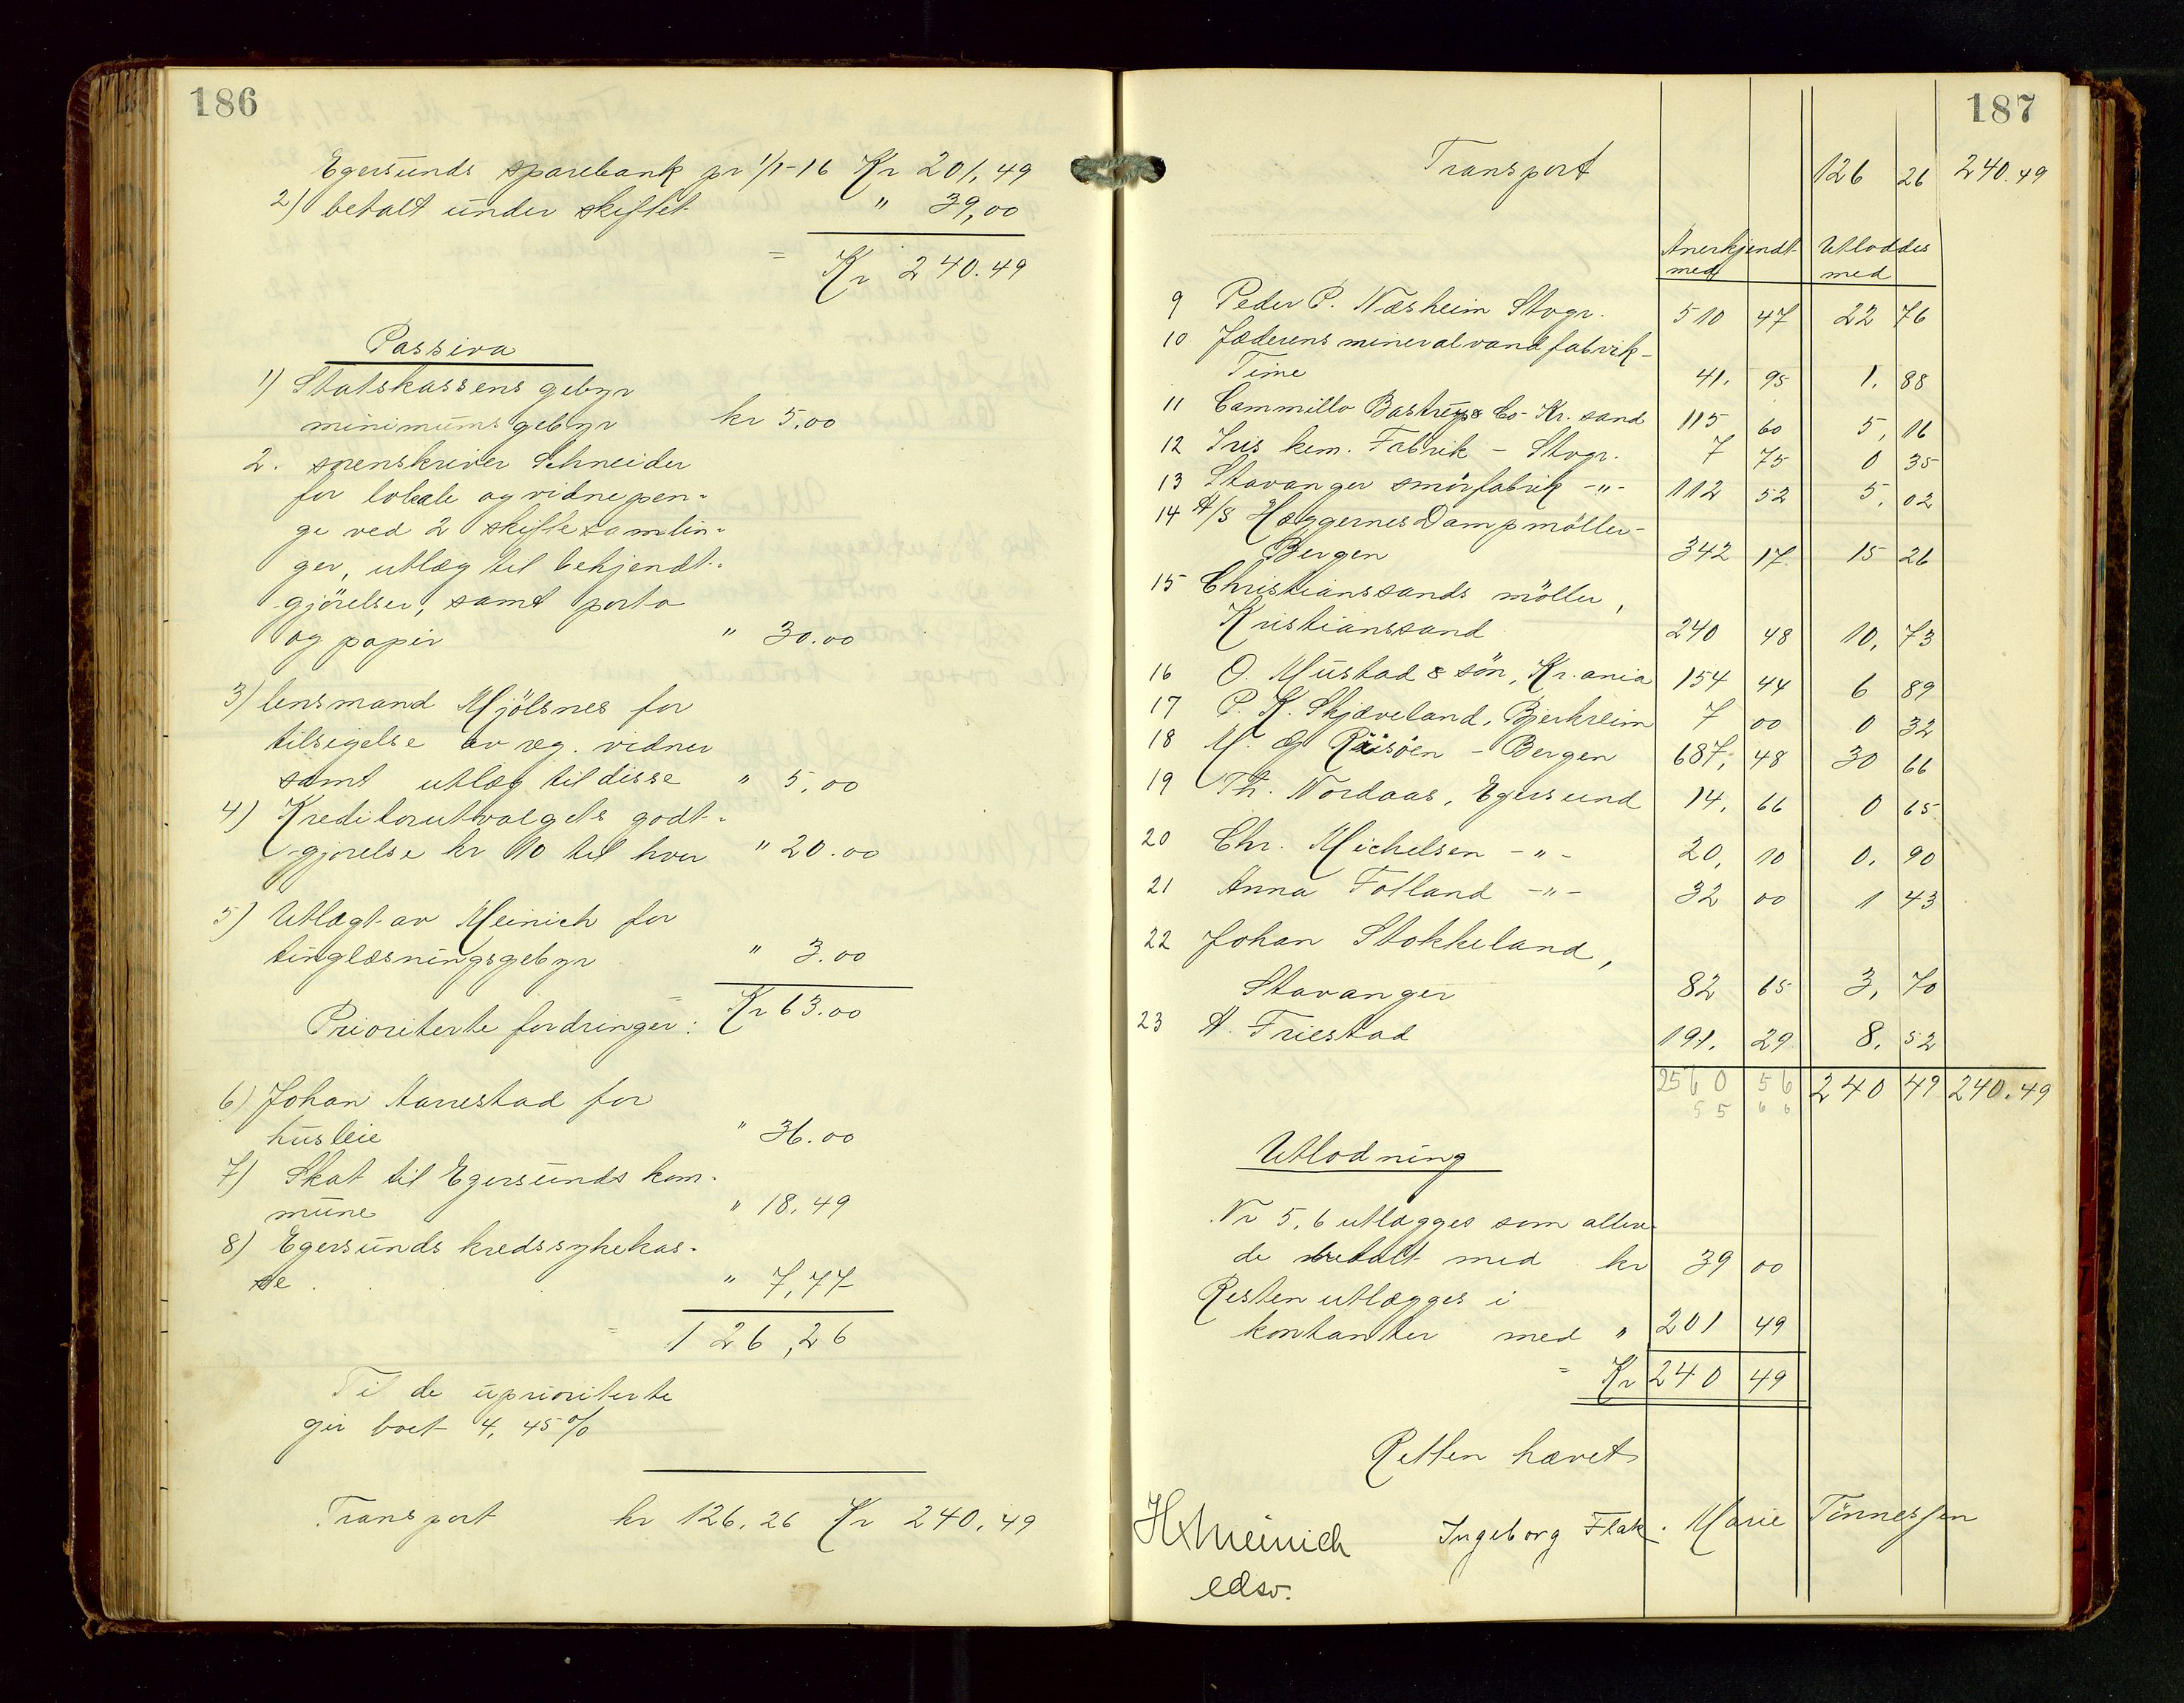 186
Egersunds sparebank pr 1/1-16 Kr 201,49
2) betalt under skiftet " 39,00
= Kr 240.49
Passiva
1) Statskassens gebyr
minimums gebyr kr 5,00
2. sorenskriver Schneider
for lokale og vidnepen-
ge ved 2 skiftesamlin-
ger, utlæg til bekjendt-
gjörelser, samt porto
og papir " 30.00
3) lensmand Mjölsnes for
tilsigelse av reg. vidner
samt utlæg til disse " 5,00
4) Kreditorutvalgets godt-
gjorelse kr 10 til hver " 20.00
5) Utlægt av Meinich for
tinglæsningsgebyr " 3.00
= Kr 63.00
Prioriterte fordringer:
6) Johan Aarrestad for
husleie " 36.00
7) Skat til Egersunds kom-
mune " 18,49
8) Egersunds kredssykekas-
se " 7,77
= 126,26
Til de uprioriterte
gir boet 4,45%
Transport kr 126,26 Kr 240,49
187
Transport 126 26 240.49
Anerkjendt med Utloddes med
9 Peder P. Næsheim Stvgr. 510 47 22 76
10 Jæderens mineralvandfabrik-
Time 41. 95 1. 88
11 Cammillo Bastrup & Co - Kr.sand 115 60 5, 16
12 Iris kem. Fabrik - Stvgr. 7 75 0 35
13 Stavanger smörfabrik -"- 112 52 5, 02
14 A/S Hæggernes Dampmöller-
Bergen 342 17 15 26
15 Christianssands möller,
Kristianssand 240 48 10, 73
16 O. Mustad & sön, Kr.ania 154 44 6 89
17 P. K. Skjæveland, Bjerkreim 7 00 0 32
18 M. G. Räisöen - Bergen 687, 48 30 66
19 Th. Nordaas, Egersund 14, 66 0 65
20 Chr. Michelsen -"- 20, 10 0. 90
21 Anna Folland -"- 32 00 1 43
22 Johan Stokkeland,
Stavanger 82 65 3, 70
23 A. Friestad 191. 29 8, 52
2560 56 240 49 240.49
55 66
Utlodning
Nr 5, 6 utlægges som allere-
de betalt med kr 39 00
Resten utlægges i
kontanter med " 201 49
= Kr 240 49
Retten hævet
Meinich Ingeborg Flak. Marie Tönnessen
edsv.